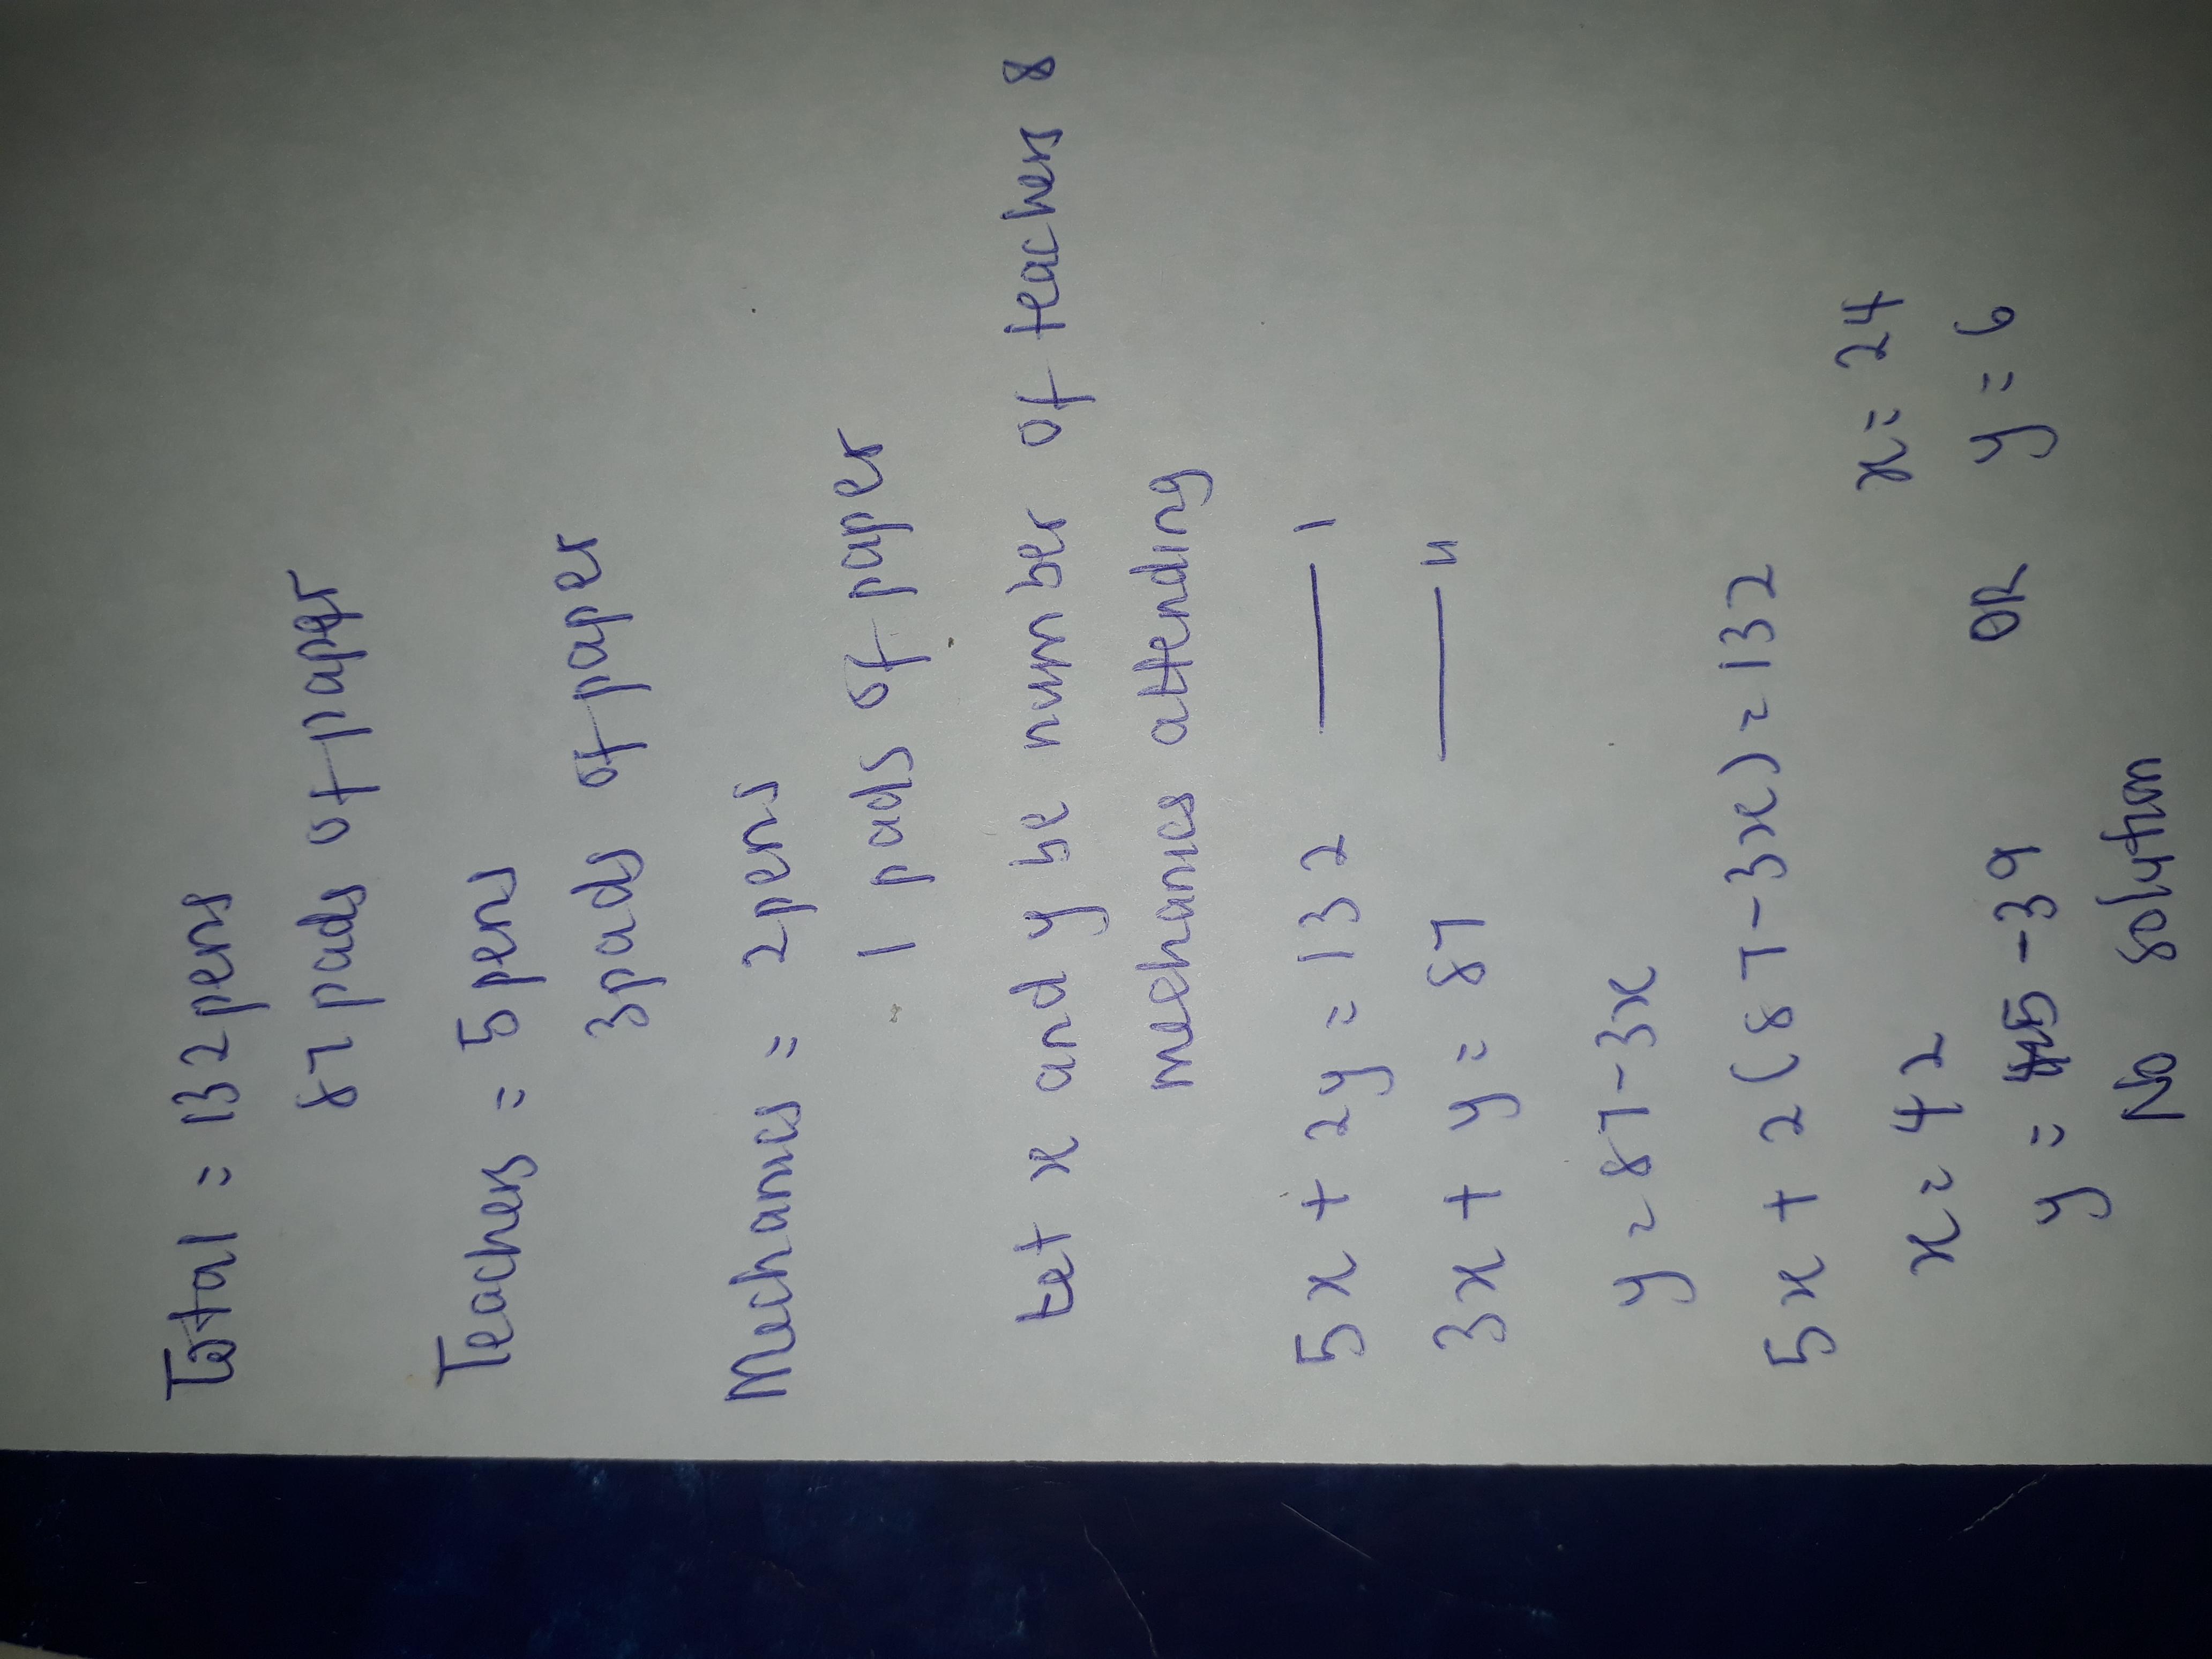 Total = 132pens
87 pads of paper
Teachers = 5 pens
3pads of paper
Mechanics = 2pens
1 pads of paper
Let x and y be number of teachers &
mechanics attending
5x + 2y = 132 —— I
3x + y = 87 —— II
y = 87-3x
5x + 2(87-3x) = 132
x = 42 x = 24
y = -39 OR y = 6
No solution